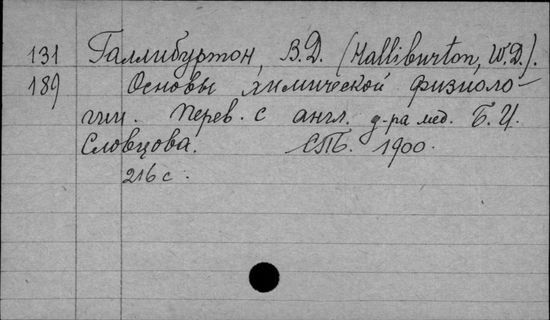 131 Галлибуртон, В.Д. (Halliburton, W.D.).
189 Основы химической физиоло-
гии. Перев. с англ. д-ра мед. Б. И.
Словцова. СПБ. 1900.
216 с.